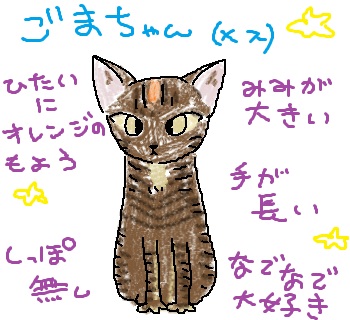 ごまちゃん(メス)
ひたい
に
オレンジの
もよう
みみが
大きい
手が
長い
しっぽ
無し
なでなで
大好き